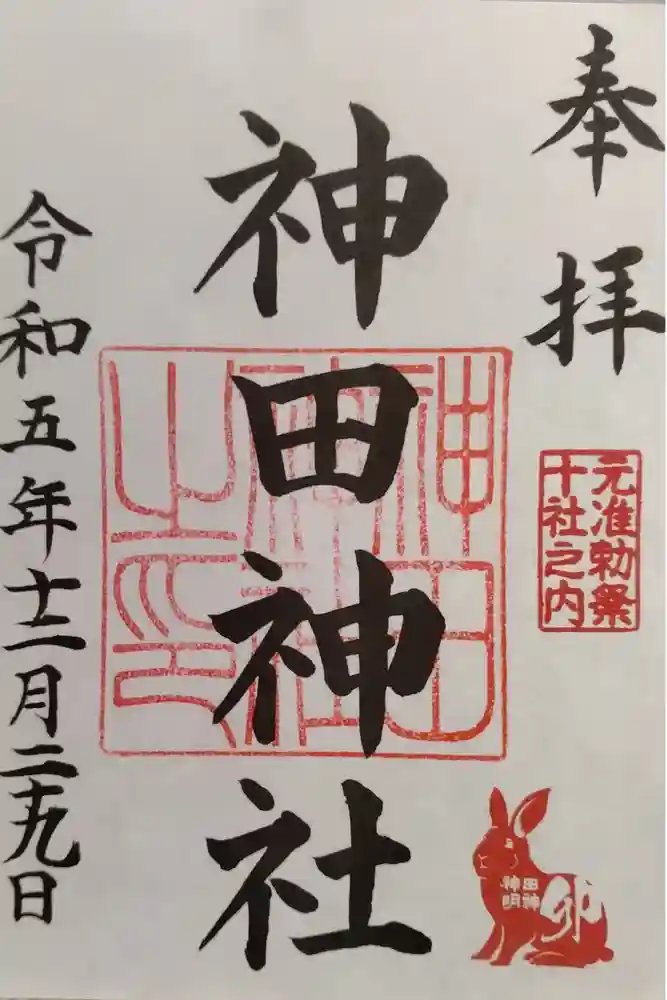 奉拝
元准勅祭
十社之内
神田神社
神田神社之印
田神
神明
卯
令和五年十二月二十九日